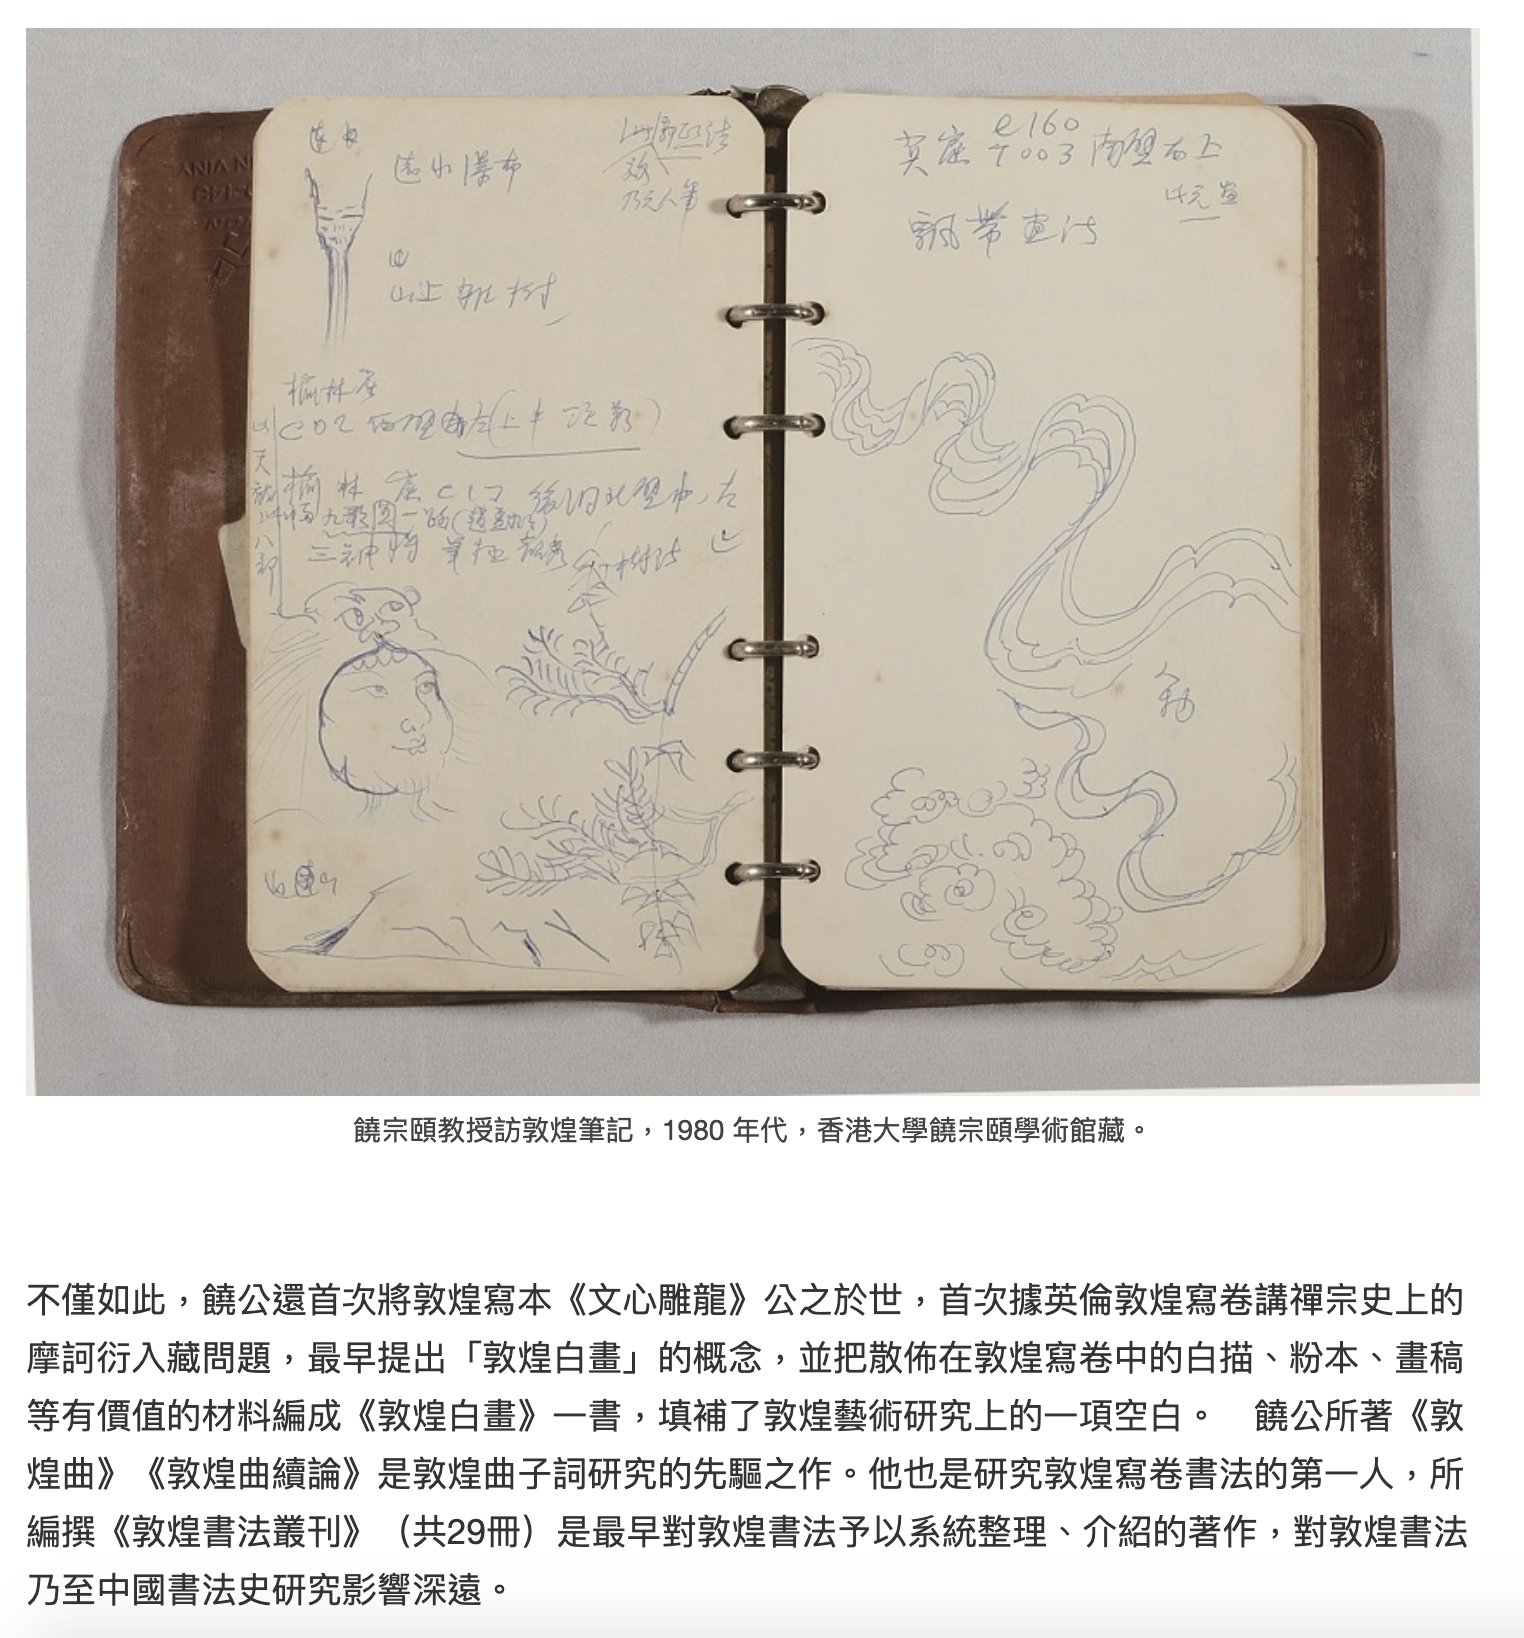 遠水瀑布
山上雜樹
乃元人筆
榆林窟
C02 西壁
榆林窟
三神將 筆極
樹法
八部
莫窟 C160 T003 南壁右上
飄帶畫法
饒宗頤教授訪敦煌筆記，1980 年代，香港大學饒宗頤學術館藏。
不僅如此，饒公還首次將敦煌寫本《文心雕龍》公之於世，首次據英倫敦煌寫卷講禪宗史上的
摩訶衍入藏問題，最早提出「敦煌白畫」的概念，並把散佈在敦煌寫卷中的白描、粉本、畫稿
等有價值的材料編成《敦煌白畫》一書，填補了敦煌藝術研究上的一項空白。　饒公所著《敦
煌曲》《敦煌曲續論》是敦煌曲子詞研究的先驅之作。他也是研究敦煌寫卷書法的第一人，所
編撰《敦煌書法叢刊》（共29冊）是最早對敦煌書法予以系統整理、介紹的著作，對敦煌書法
乃至中國書法史研究影響深遠。